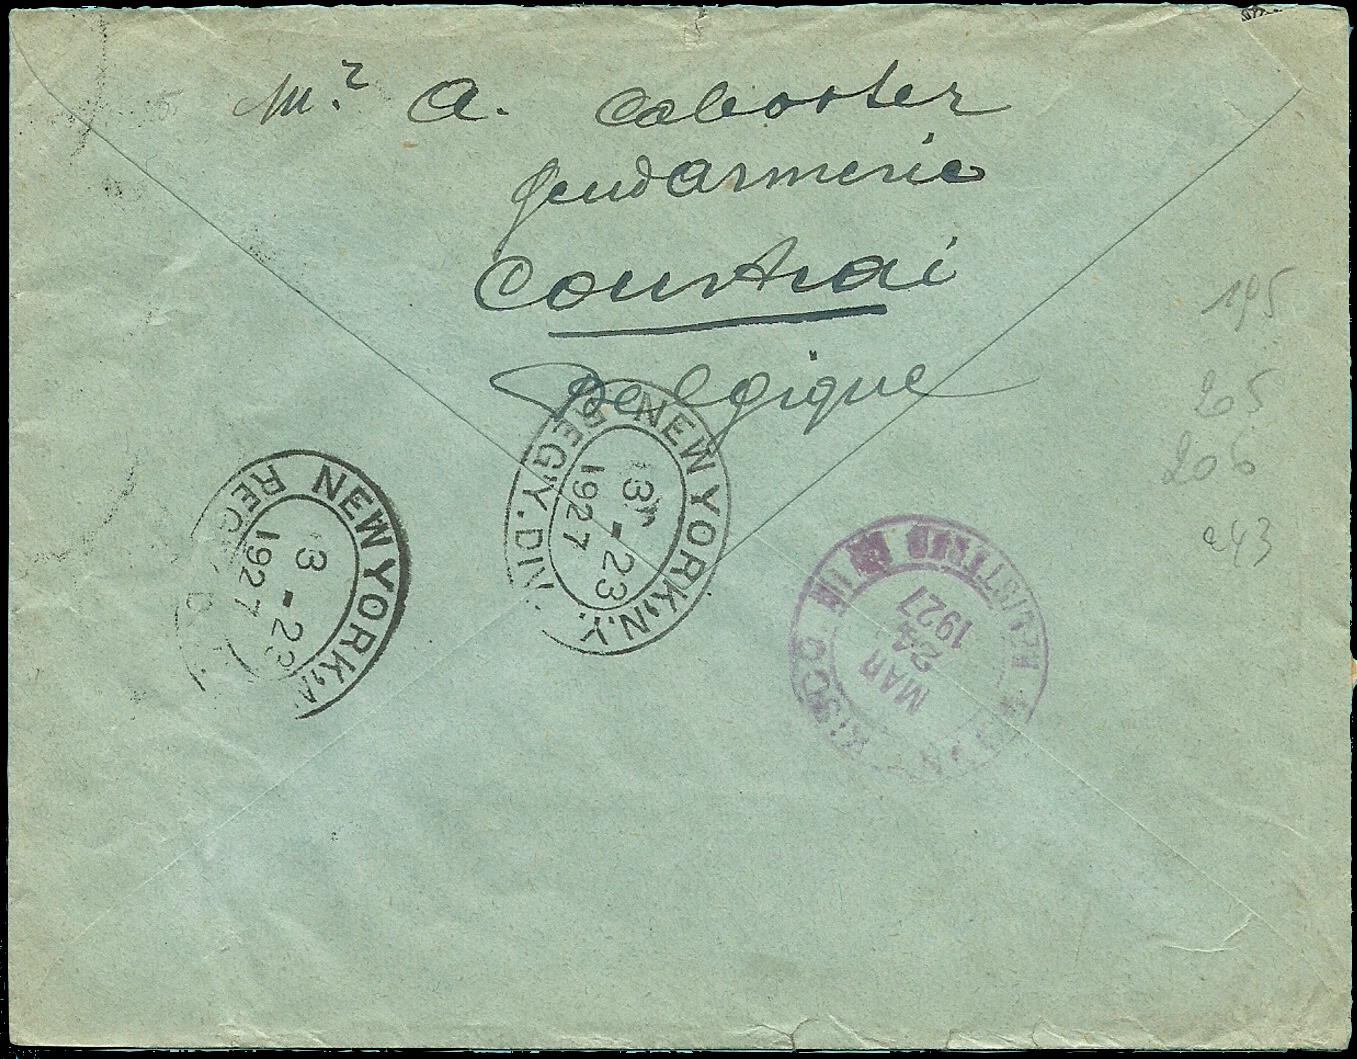 Mr. A. Cabooter
Gendarmerie
Courtrai
Belgique
195
205
206
243
NEW YORK, N.Y.
REG'Y. DIV.
3-23
1927
NEW YORK, N
REG
3-23
1927
REGISTERED
MAR
24
1927